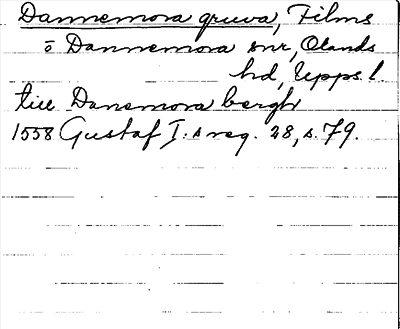 Dannemora gruva, Films
o Dannemora snr, Olands
hd, Upps. l.
till Danemora bergh
1558 Gustaf I:s reg. 28, s. 79.